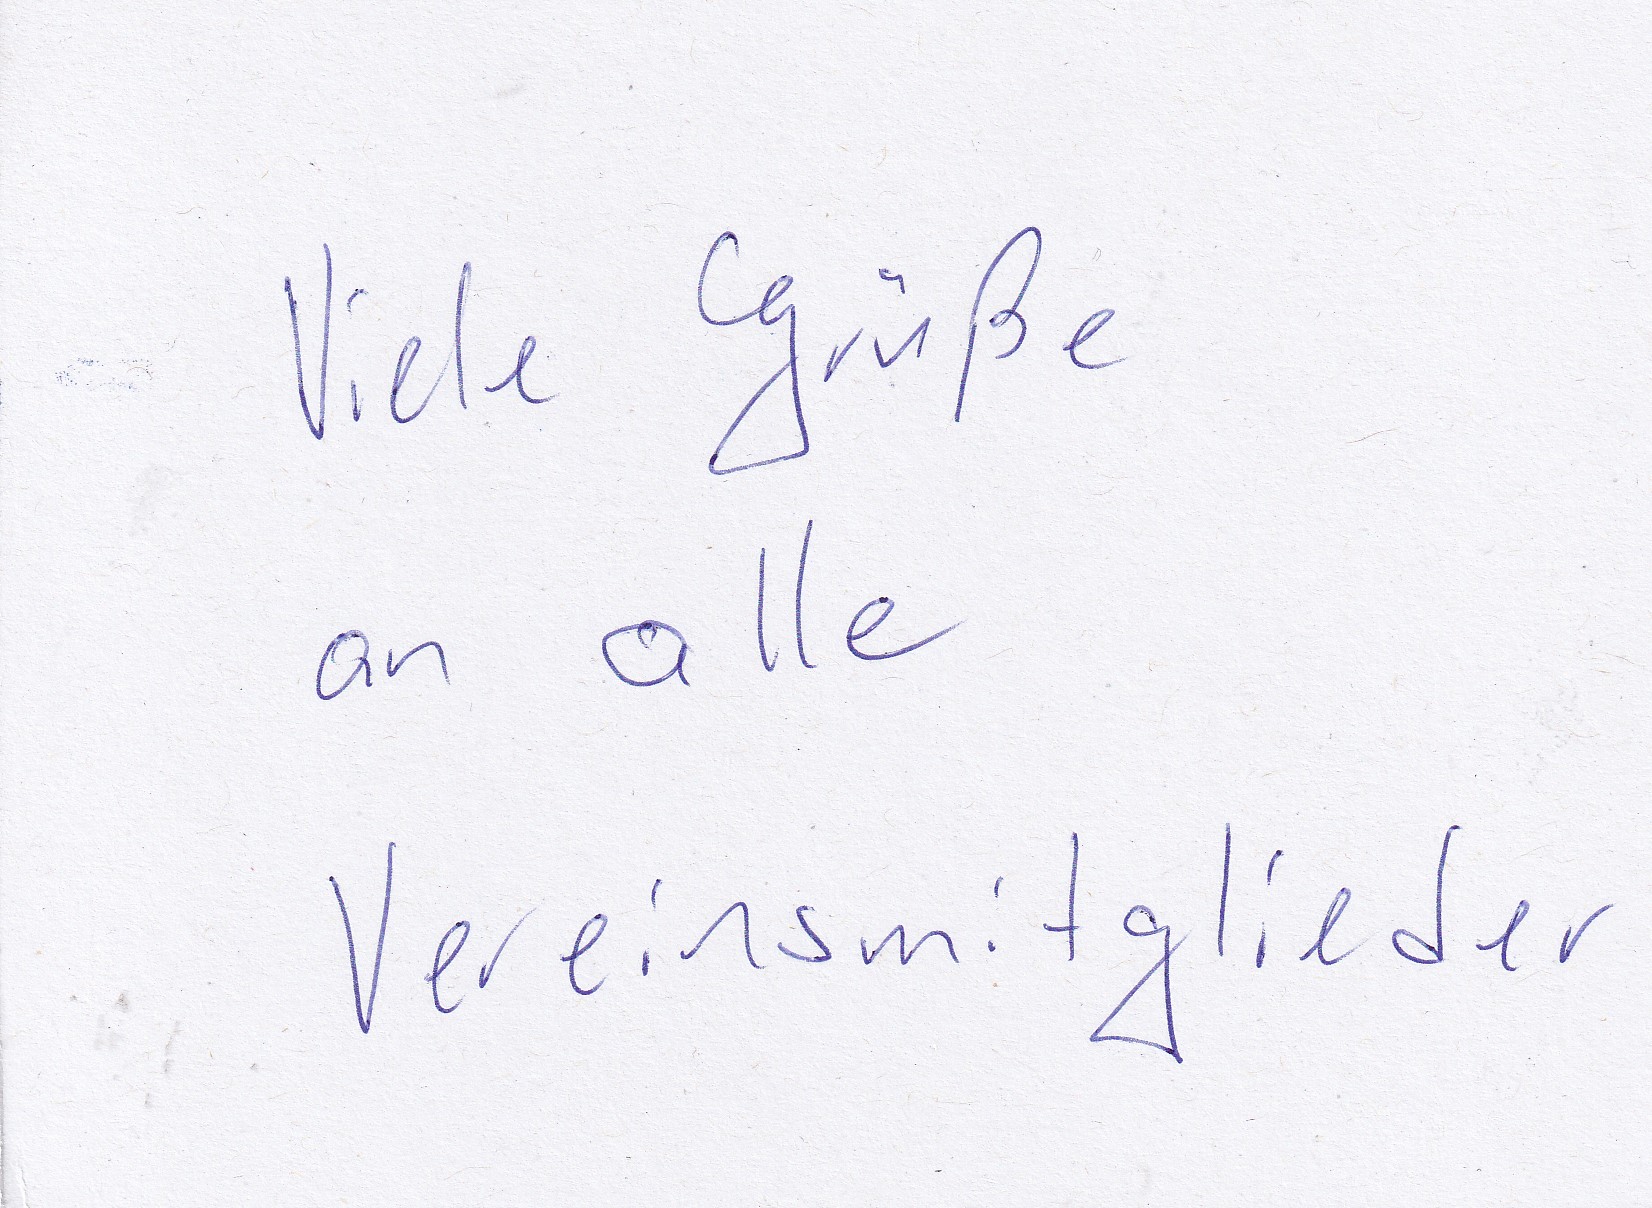 Viele Grüße
an alle
Vereinsmitglieder